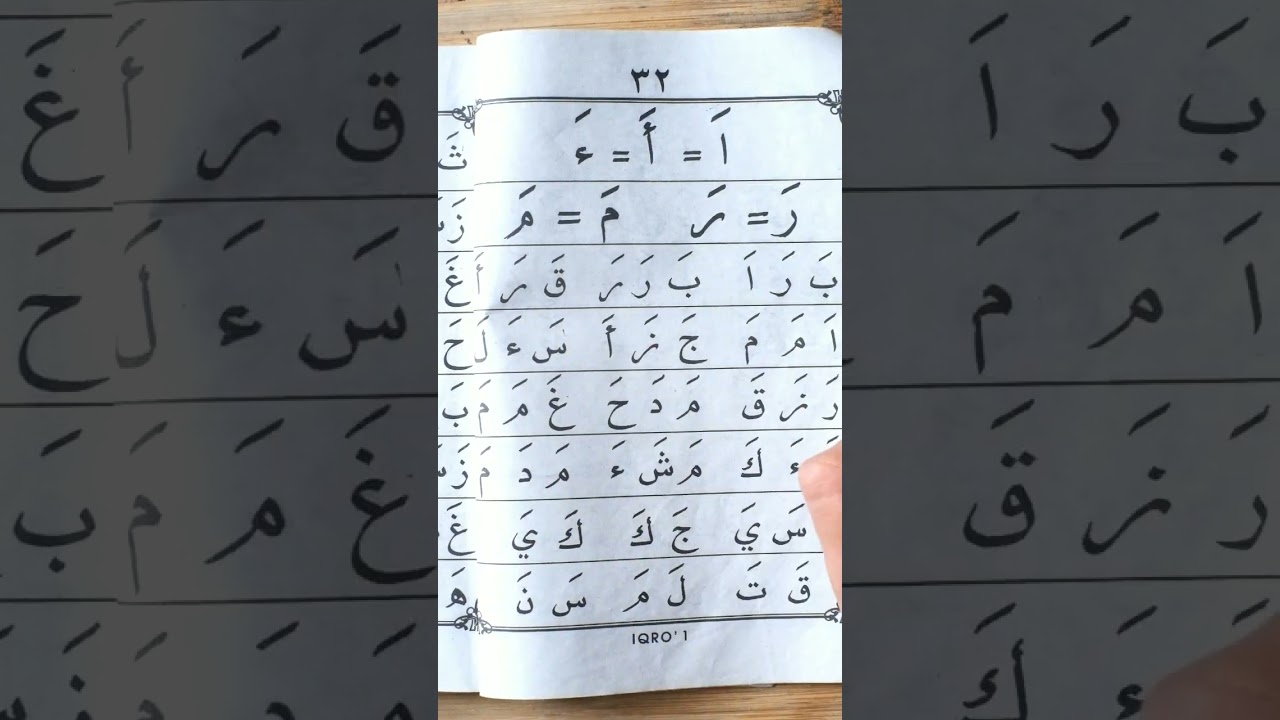 ٣٢
اَ = أَ = ءَ
رَ = رَ مَ = مَ
بَ رَ اَ بَ رَ رَ قَ رَ أَ
اَ مَ مَ جَ زَ أَ سَ ءَ لَ
رَ زَ قَ مَ دَ حَ غَ مَ مَ
ءَ كَ مَ شَ ءَ مَ دَ مَ
سَ يَ جَ كَ كَ يَ
قَ تَ لَ مَ سَ نَ
IQRO' 1